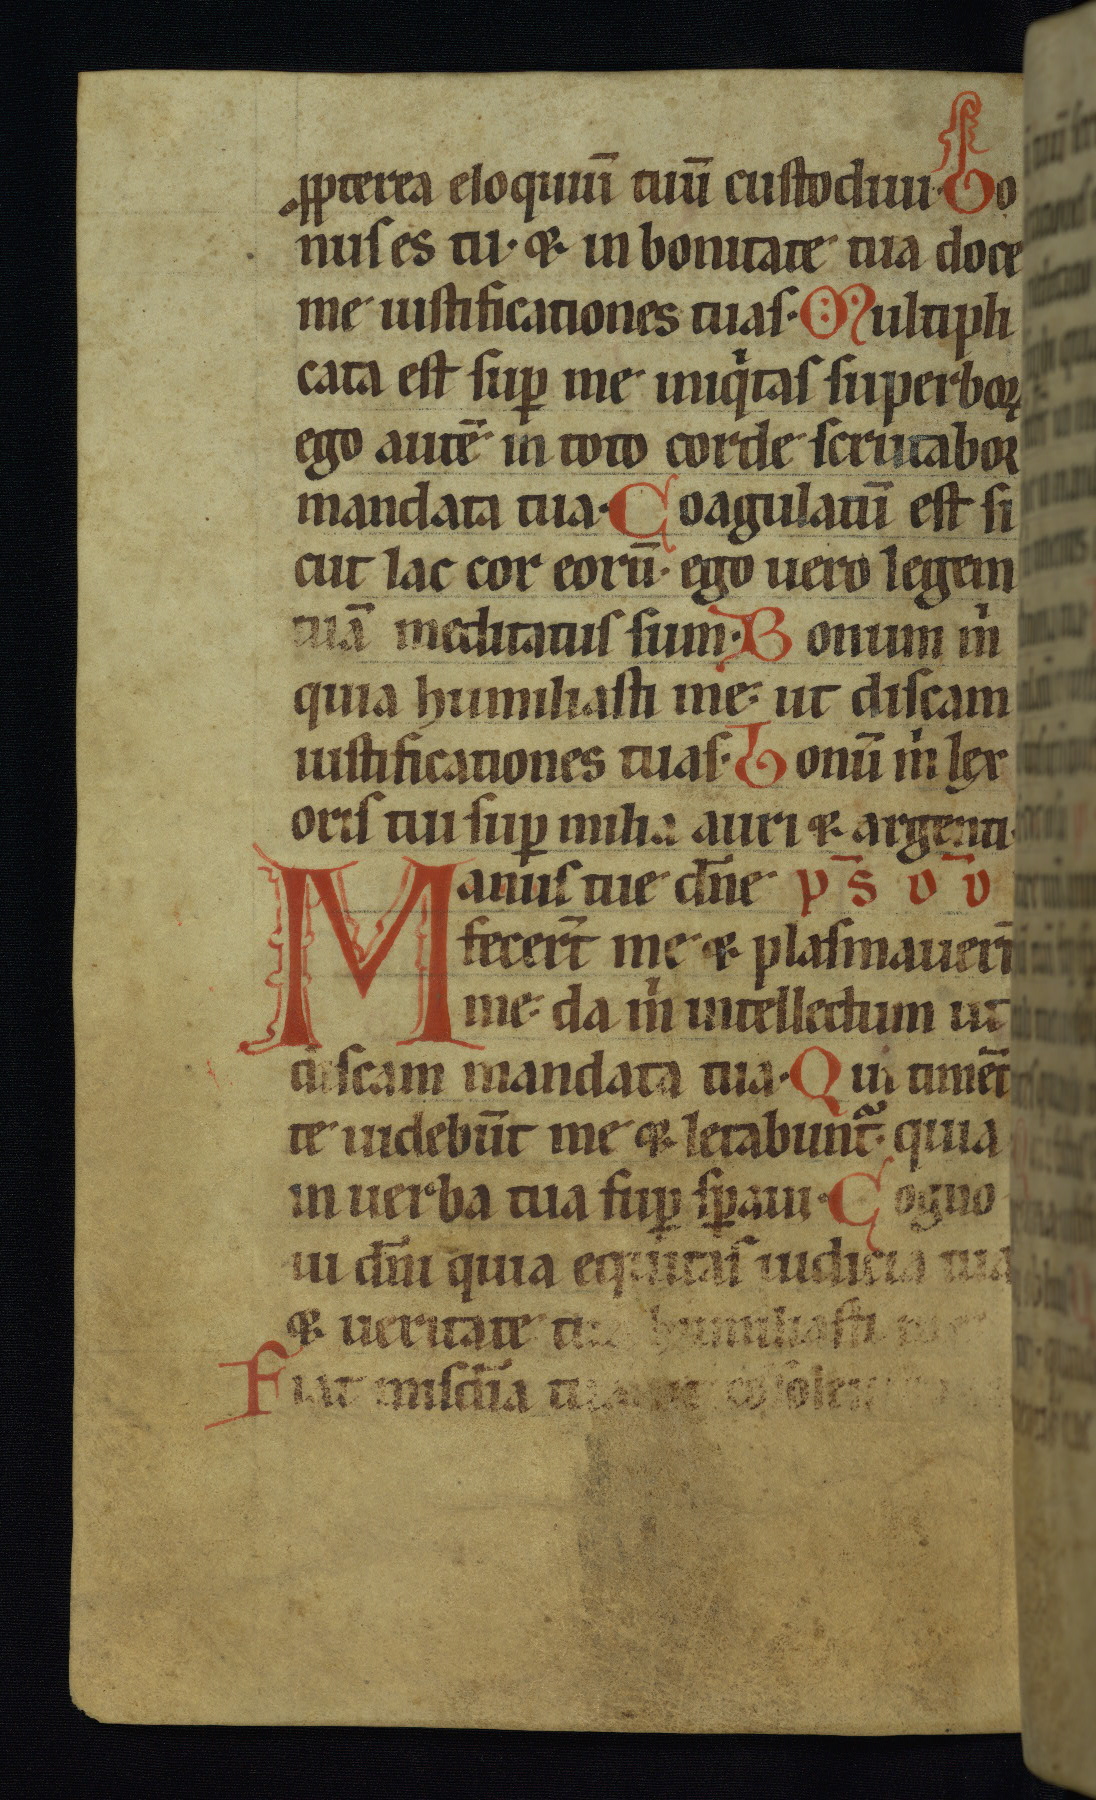 ꝓpterea eloquiū tuū custodiui· Bo
nus es tu· & in bonitate tua doce
me iustificationes tuas· Multipli
cata est sup̱ me iniqͥtas superboꝝ
ego autē in toto corde scrutabor
mandata tua· Coagulatū est si
cut lac cor eorū· ego uero legem
tuā meditatus sum· Bonum m̊
quia humiliasti me· ut discam
iustificationes tuas· Bonū m̊ lex
oris tui sup̱ milia auri & argenti·
Manus tue dn̄e p̄ s̄ v̄ v̄
fecert̄ me & plasmauert̄
me· da m̊ intellectum ut
discam mandata tua· Qui timēt
te uidebūt me & letabunt᷑· quia
in uerba tua sup̱ sp̱aui· Cogno
ui dn̄e quia equitas iudicia tua
& ueritate tua humiliasti me
Fiat mis̄cdia tua ut